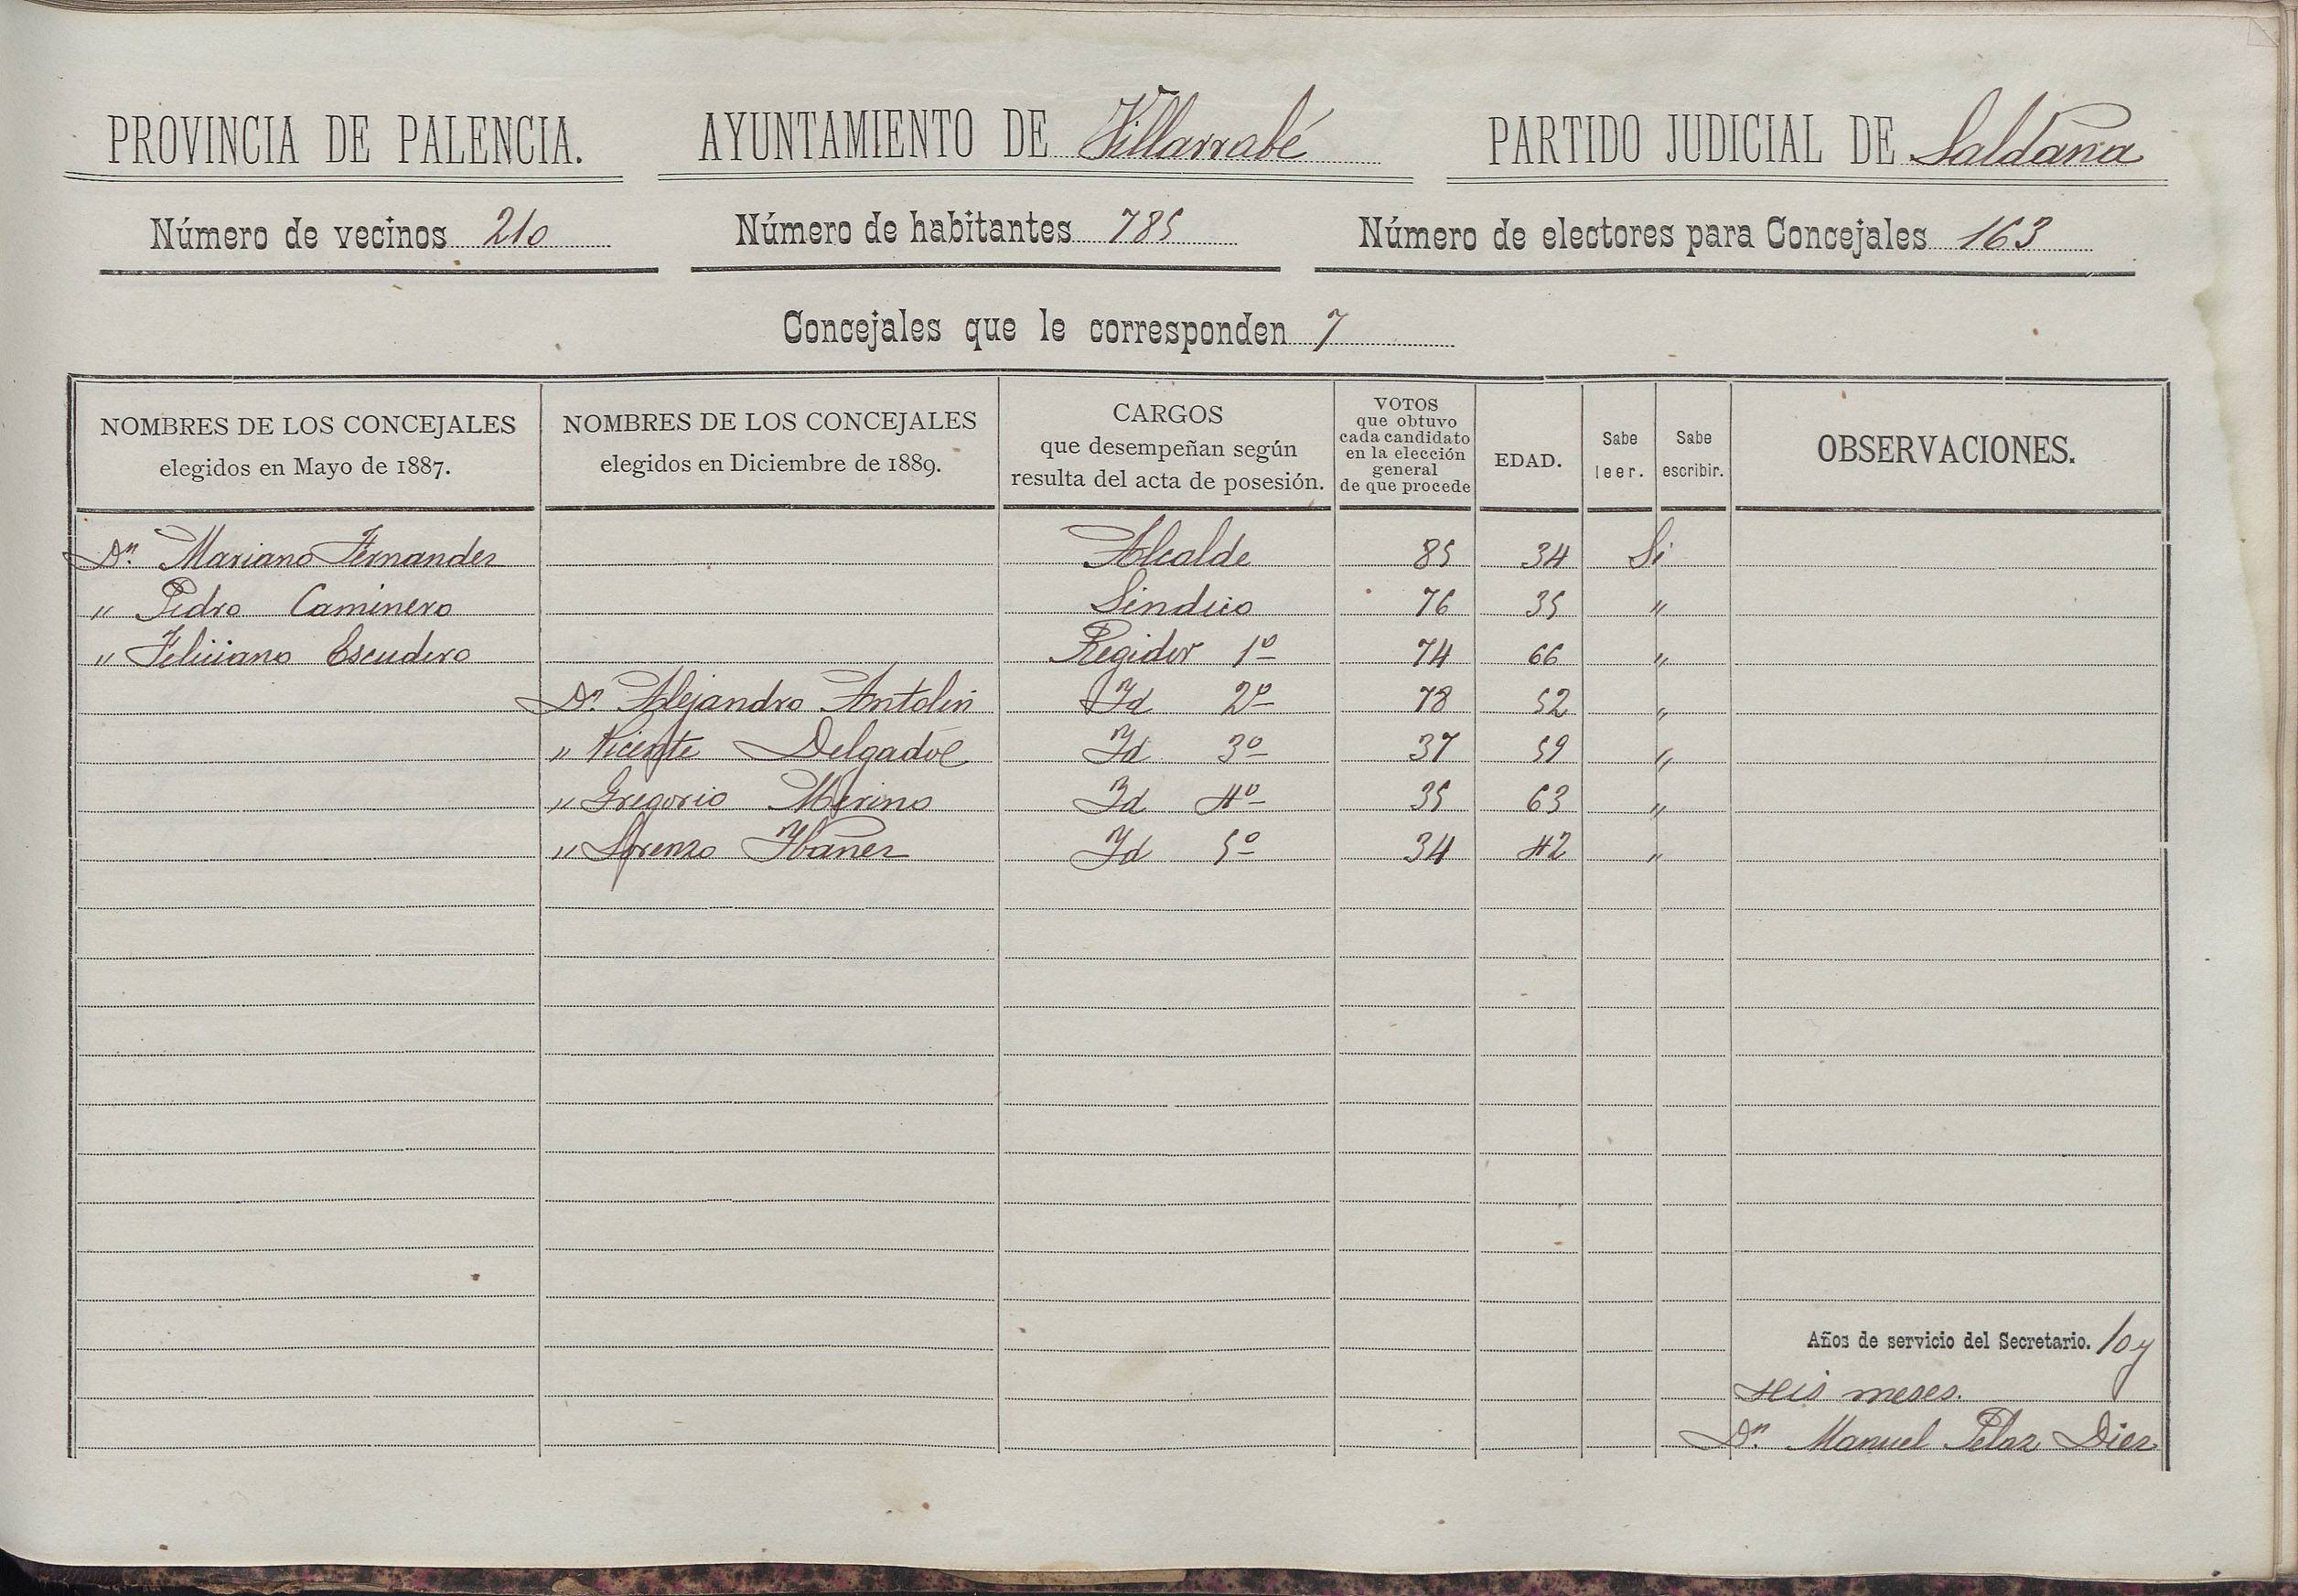 PROVINCIA DE PALENCIA. AYUNTAMIENTO DE Villarrabé PARTIDO JUDICIAL DE Saldaña
Número de vecinos 210 Número de habitantes 785 Número de electores para Concejales 163
Concejales que le corresponden 7
NOMBRES DE LOS CONCEJALES
elegidos en Mayo de 1887.
NOMBRES DE LOS CONCEJALES
elegidos en Diciembre de 1889.
CARGOS
que desempeñan según
resulta del acta de posesión.
VOTOS
que obtuvo
cada candidato
en la elección
general
de que procede
EDAD.
Sabe
leer.
Sabe
escribir.
OBSERVACIONES.
Dn. Mariano Fernandez Alcalde 85 34 Si
" Pedro Caminero Sindico 76 35 "
" Feliciano Escudero Regidor 1º 74 66 "
Dn. Alejandro Antolin Id 2º 78 52 "
" Vicente Delgado Id 3º 37 59 "
" Gregorio Merino Id 4º 35 63 "
" Lorenzo Ibañez Id 5º 34 42 "
Años de servicio del Secretario. 10 y
seis meses.
Dn. Manuel Pelaz Diez